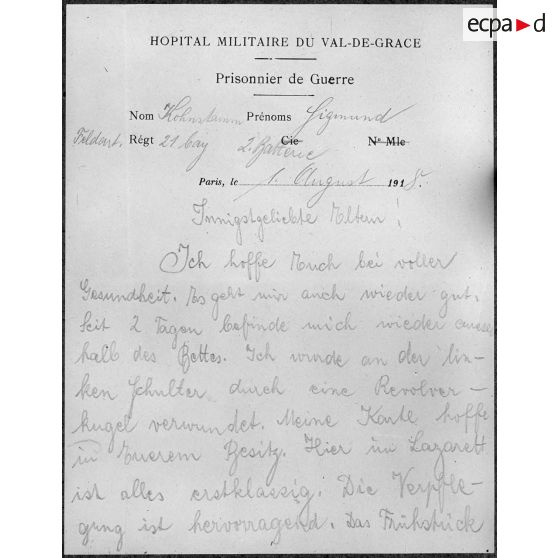 ecpa▶d
HOPITAL MILITAIRE DU VAL-DE-GRACE
Prisonnier de Guerre
Nom Kohnstamm Prénoms Sigmund
Feldart. Régt 21 bay 2. Batterie Cie Nº Mle
Paris, le 1. August 1918.
Innigstgeliebte Eltern!
Ich hoffe Euch bei voller
Gesundheit. Es geht mir auch wieder gut.
Seit 2 Tagen befinde mich wieder ausser
halb des Bettes. Ich wurde an der lin-
ken Schulter durch eine Revolver-
kugel verwundet. Meine Karte hoffe
in Euerem Besitz. Hier im Lazarett
ist alles erstklassig. Die Verpfle-
gung ist hervorragend. Das Frühstück